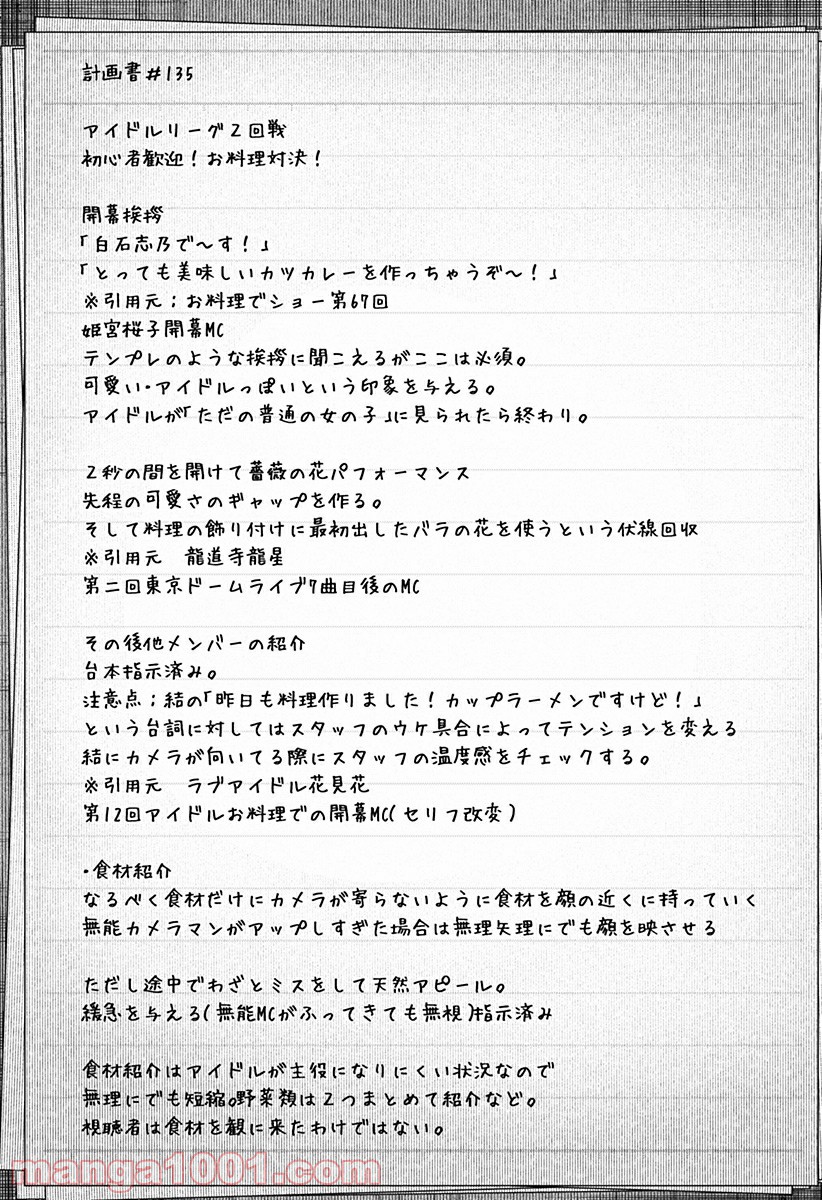 計画書#135
アイドルリーグ2回戦
初心者歓迎！お料理対決！
開幕挨拶
「白石志乃で〜す！」
「とっても美味しいカツカレーを作っちゃうぞ〜！」
※引用元；お料理でショー第67回
姫宮桜子開幕MC
テンプレのような挨拶に聞こえるがここは必須。
可愛い・アイドルっぽいという印象を与える。
アイドルが「ただの普通の女の子」に見られたら終わり。
2秒の間を開けて薔薇の花パフォーマンス
先程の可愛さのギャップを作る。
そして料理の飾り付けに最初出したバラの花を使うという伏線回収
※引用元　龍道寺龍星
第二回東京ドームライブ7曲目後のMC
その後他メンバーの紹介
台本指示済み。
注意点；結の「昨日も料理作りました！カップラーメンですけど！」
という台詞に対してはスタッフのウケ具合によってテンションを変える
結にカメラが向いてる際にスタッフの温度感をチェックする。
※引用元　ラブアイドル花見花
第12回アイドルお料理での開幕MC(セリフ改変)
・食材紹介
なるべく食材だけにカメラが寄らないように食材を顔の近くに持っていく
無能カメラマンがアップしすぎた場合は無理矢理にでも顔を映させる
ただし途中でわざとミスをして天然アピール。
緩急を与える(無能MCがふってきても無視)指示済み
食材紹介はアイドルが主役になりにくい状況なので
無理にでも短縮。野菜類は2つまとめて紹介など。
視聴者は食材を観に来たわけではない。
manga1001.com